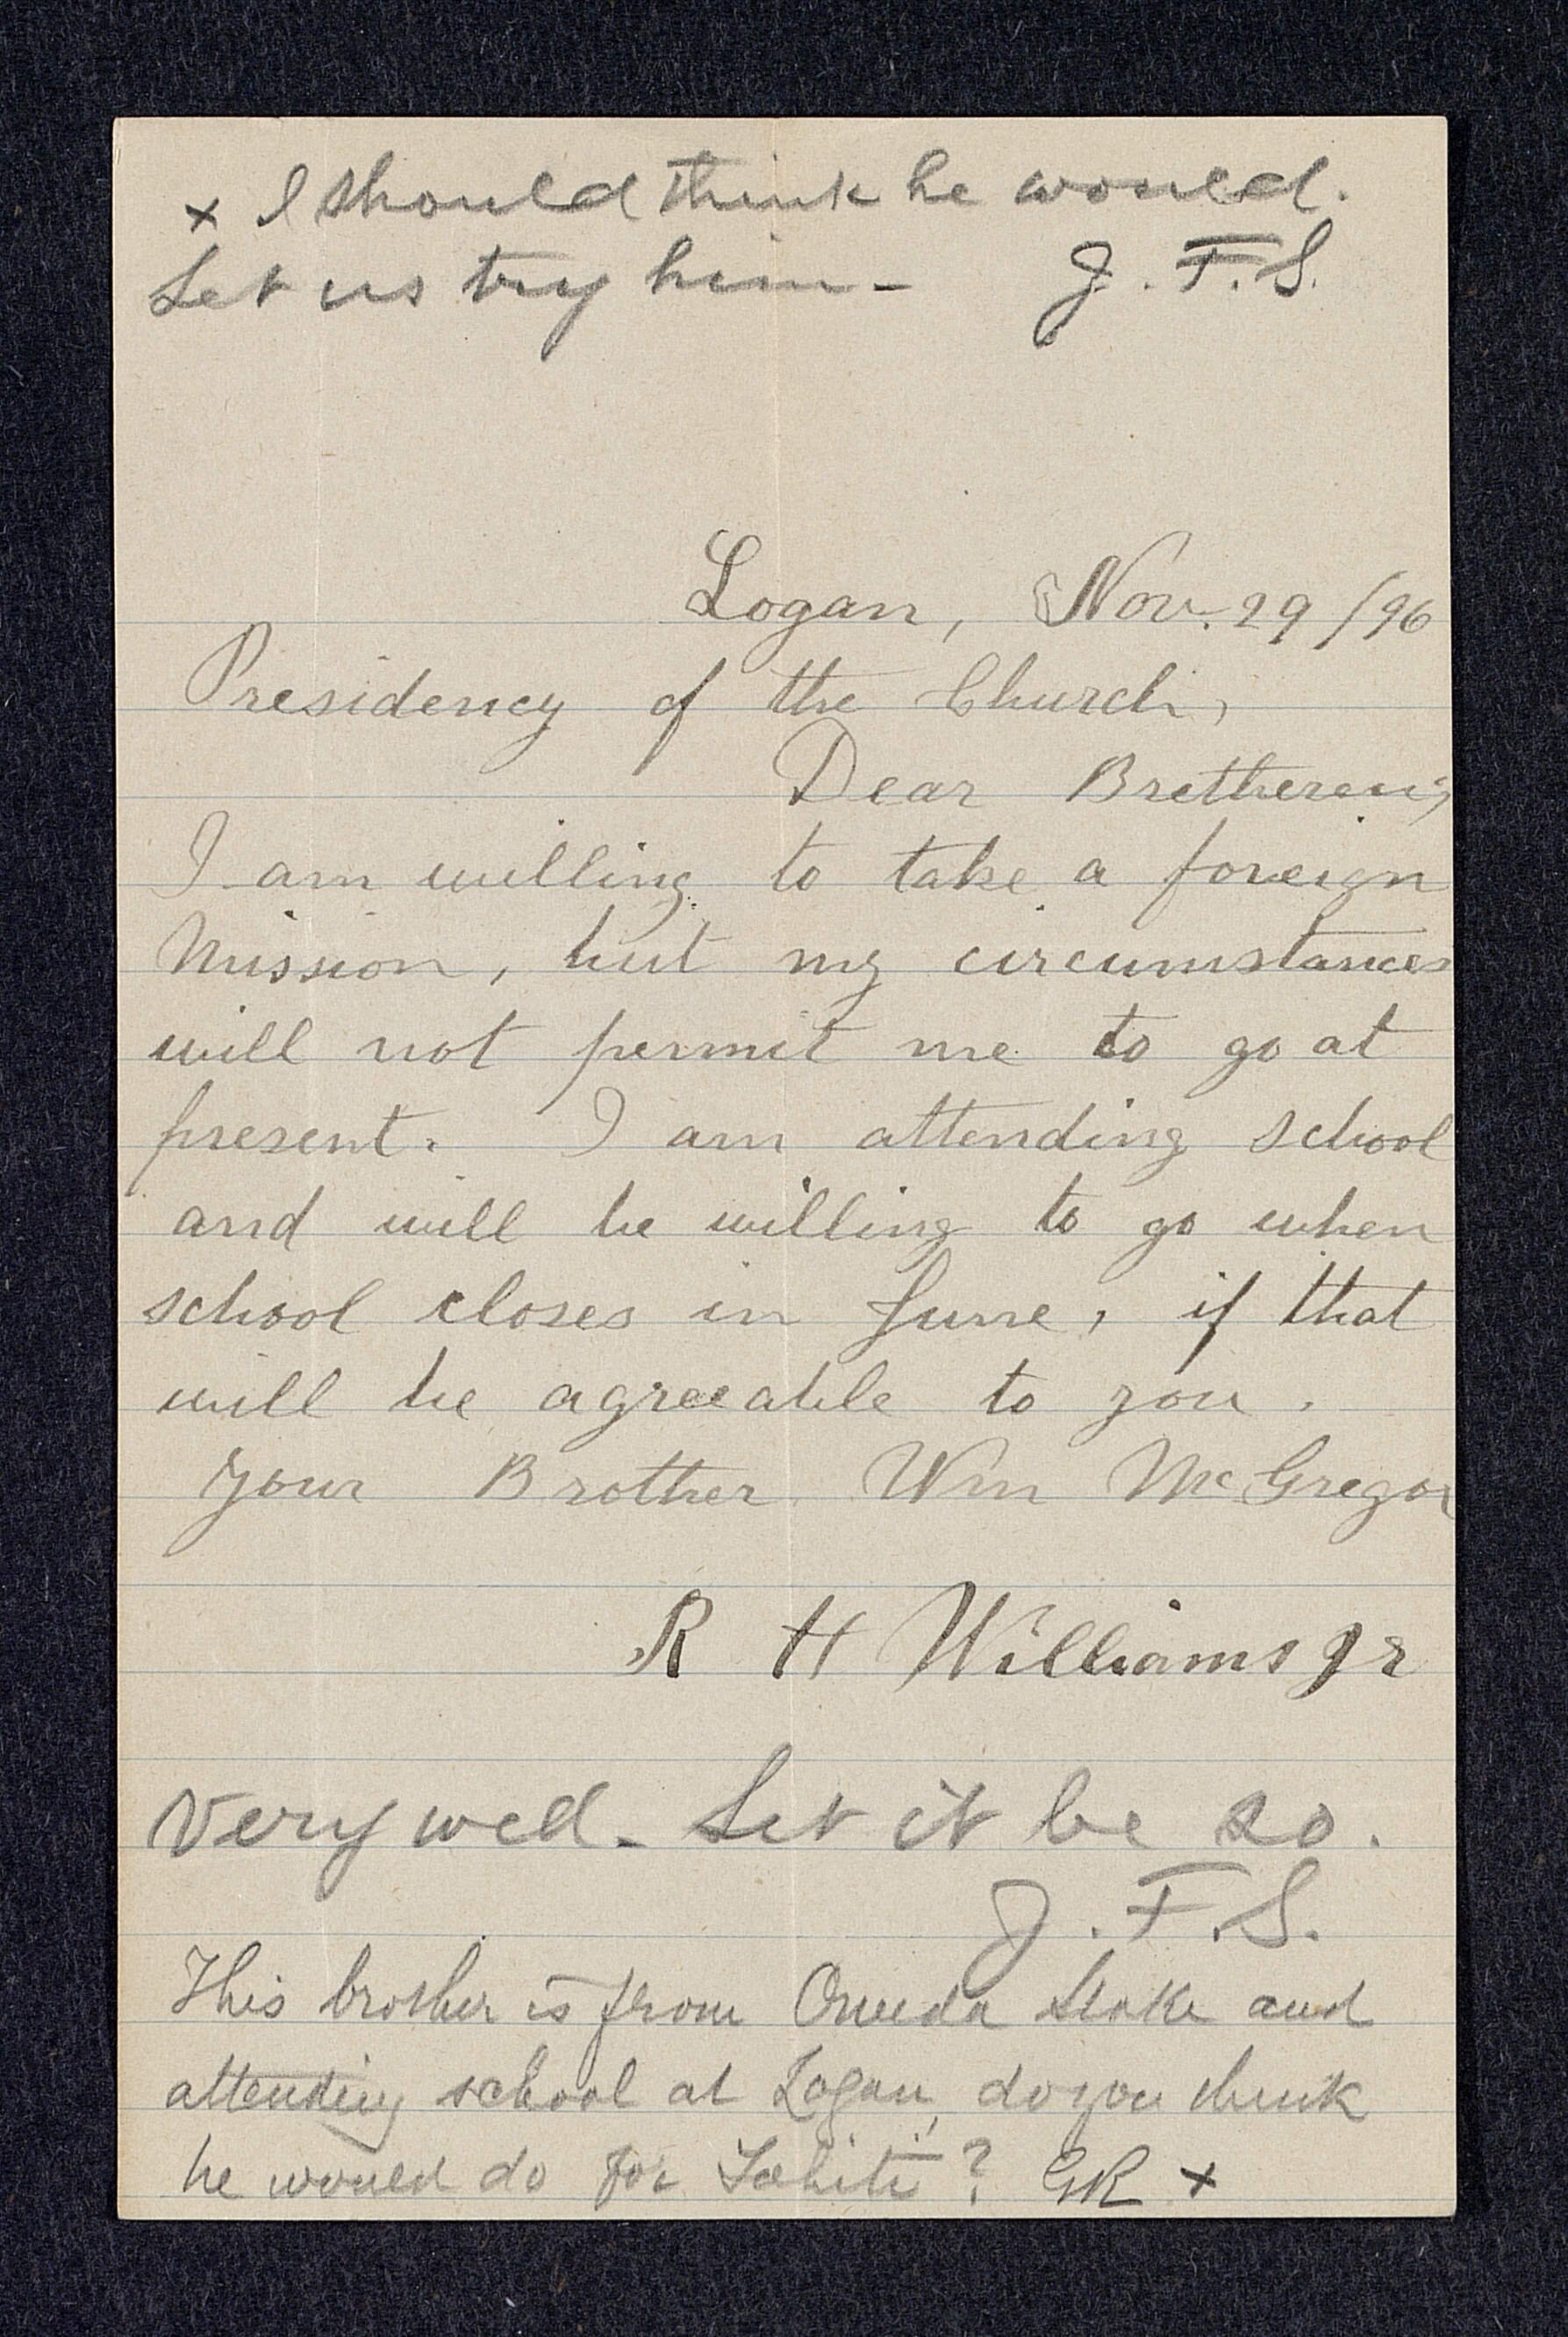 x I should think he would.
Let us try him - J. F. S.
Logan, Nov. 29/96
Presidency of the Church,
Dear Bretheren;
I am willing to take a foreign
Mission, but my circumstances
will not permit me to go at
present. I am attending school
and will be willing to go when
school closes in June, if that
will be agreeable to you.
Your Brother Wm McGregor
R H Williams Jr
Very well - Let it be so.
J. F. S.
This brother is from Oneida Stake and
attending school at Logan, do you think
he would do for Tahiti? GR x